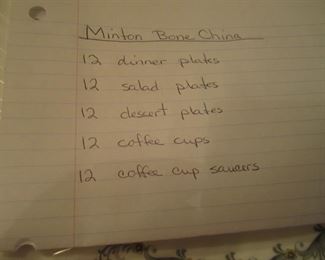 Minton Bone China
12 dinner plates
12 salad plates
12 dessert plates
12 coffee cups
12 coffee cup saucers